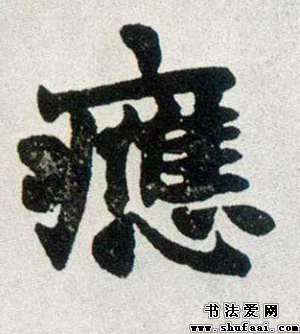 應
书法爱网
www.shufaai.com